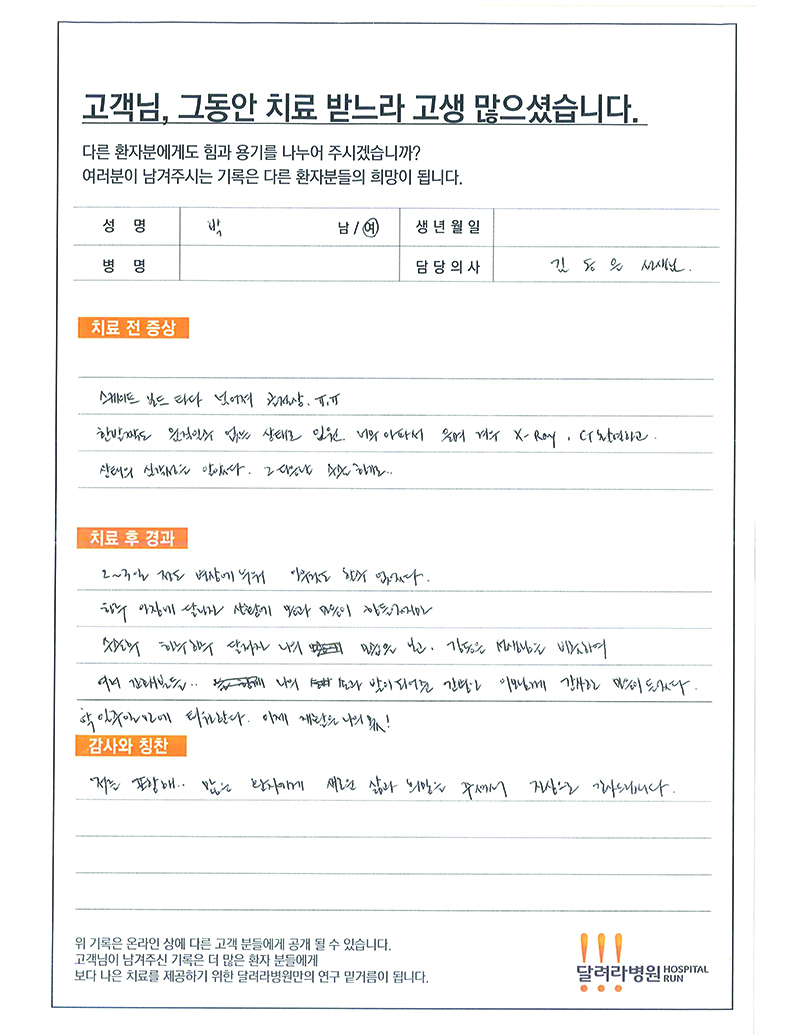 고객님, 그동안 치료 받느라 고생 많으셨습니다.
다른 환자분에게도 힘과 용기를 나누어 주시겠습니까?
여러분이 남겨주시는 기록은 다른 환자분들의 희망이 됩니다.
성 명 박 남 / 여 생년월일
병 명 담당의사 김 동 은 선생님.
치료 전 증상
스케이트 보드 타다 넘어져 ㅠ.ㅠ
한발짝도 움직일수 없는 상태로 입원. 너무 아파서 울며 겨우 X-Ray, CT 촬영하고.
상태의 심각성을 알았다. 그 다음날 수술 하게..
치료 후 경과
2~3일 정도 병상에 누워 할수 없었다.
하루 아침에 달라진 상황에 몸과 마음이 힘들었지만
수술후 하루하루 달라진 나의 모습을 보고. 김동은 선생님을 비롯하여
여러 간호분들.. 나의 손과 발이 되어준 간병인 이모님께 감사한 마음이 든다.
딱 일주일만에 퇴원한다. 이제 재활은 나의 몫!
감사와 칭찬
저를 포함해.. 많은 환자에게 새로운 삶과 희망을 주셔서 진심으로 감사드립니다.
위 기록은 온라인 상에 다른 고객 분들에게 공개 될 수 있습니다.
고객님이 남겨주신 기록은 더 많은 환자 분들에게
보다 나은 치료를 제공하기 위한 달려라병원만의 연구 밑거름이 됩니다.
달려라병원 HOSPITAL RUN